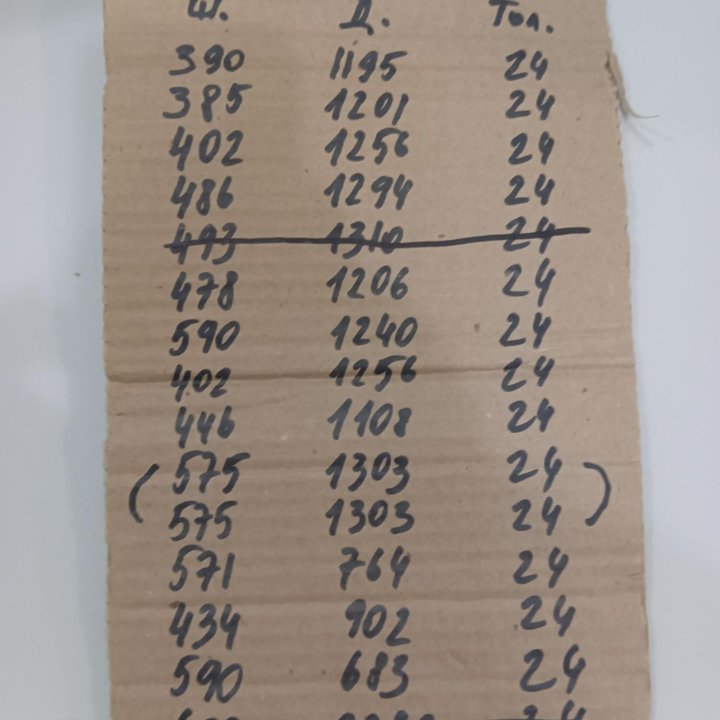 Ш. Д. Тол.
390 1195 24
385 1201 24
402 1256 24
486 1294 24
493 1310 24
478 1206 24
590 1240 24
402 1256 24
446 1108 24
(575 1303 24)
575 1303 24
571 764 24
434 902 24
590 683 24
24